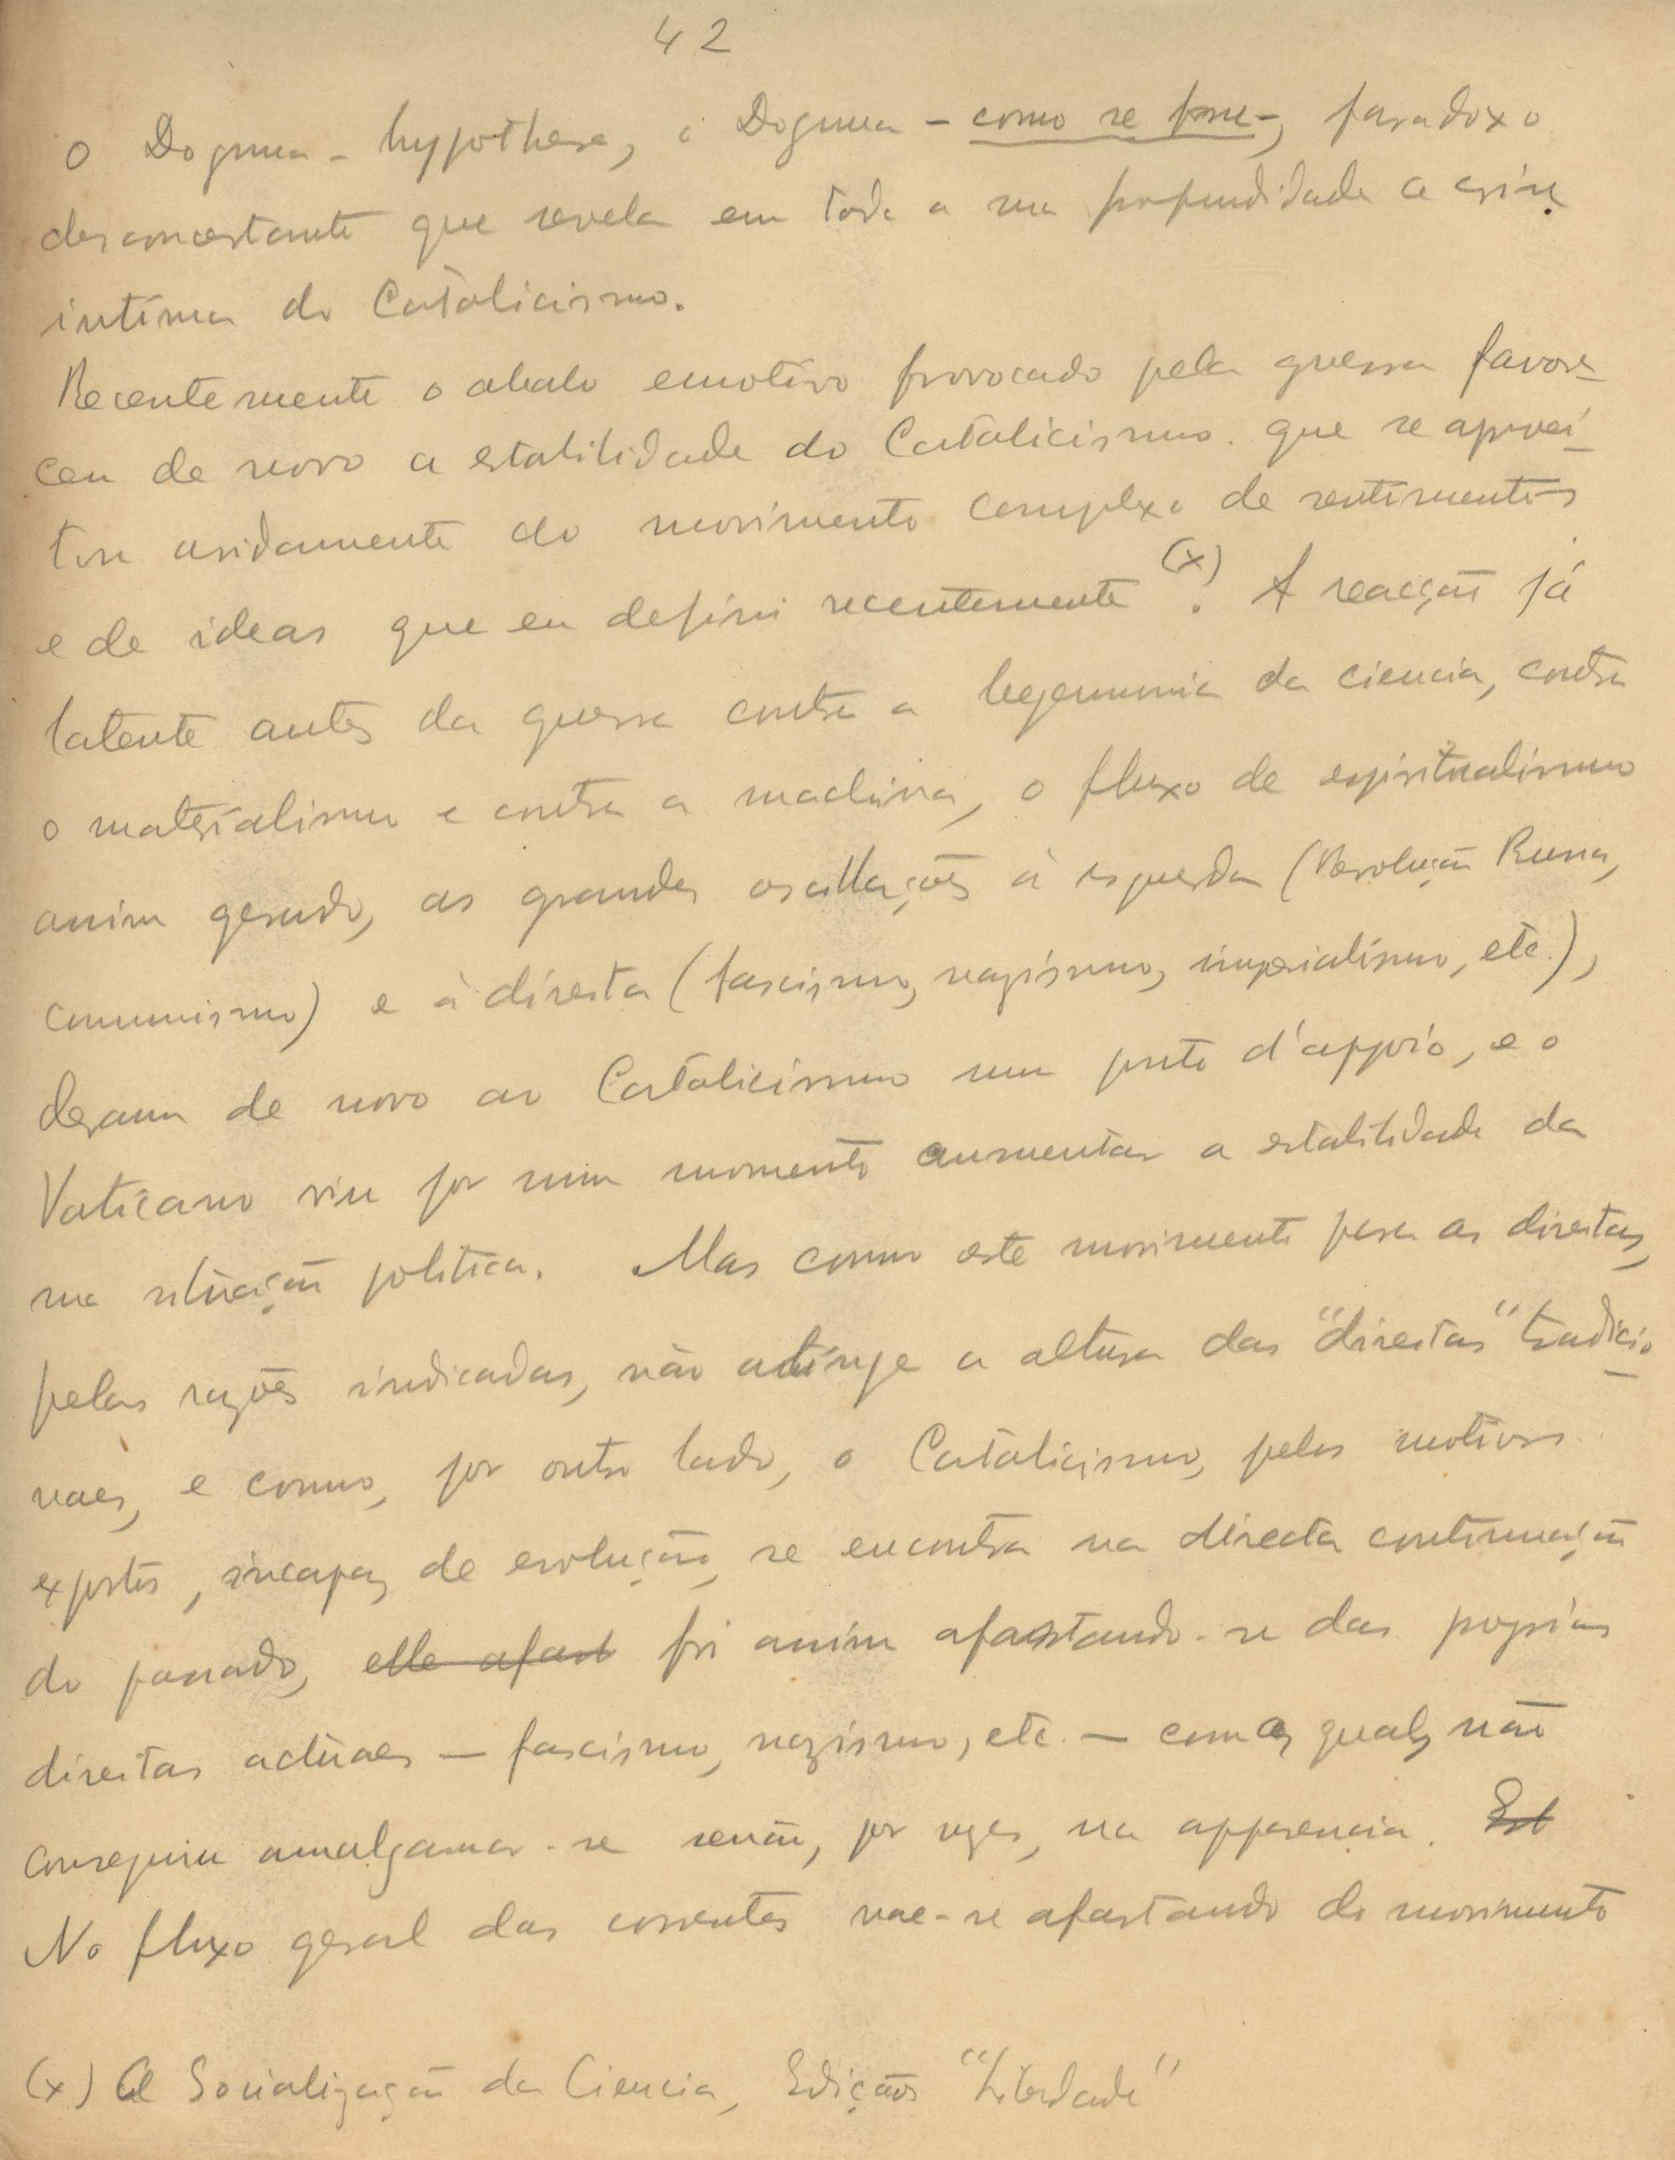 42
o Dogma - hypothese, o Dogma - como se fosse -, paradoxo
desconcertante que revela em toda a sua profundidade a crise
intima do Catolicismo.
Recentemente o abalo emotivo provocado pela guerra favore-
ceu de novo a estabilidade do Catolicismo que se aprovei-
tou avidamente do movimento complexo de sentimentos
e de ideas que eu defini recentemente (x). A reacção já
latente antes da guerra contra a hegemonia da ciencia, contra
o materialismo e contra a machina, o fluxo de espiritualismo
assim gerado, as grandes oscillações à esquerda (Revolução Russa,
comunismo) e à direita (fascismo, nazismo, imperialismo, etc.),
deram de novo ao Catolicismo um ponto d'appoio, e o
Vaticano viu por um momento aumentar a estabilidade da
sua situação politica. Mas como este movimento para as direitas,
pelas razões indicadas, não atinge a altura das "direitas" tradicio-
naes, e como, por outro lado, o Catolicismo, pelos motivos
expostos, incapaz de evolução, se encontra na directa continuação
do passado, elle afast foi assim afastando-se das proprias
direitas actuaes — fascismo, nazismo, etc. — com as quaes não
conseguiu amalgamar-se senão, por vezes, na apparencia. Est
No fluxo geral das correntes vae-se afastando do movimento
(x) A Socialização da Ciencia, Edições "Liberdade"